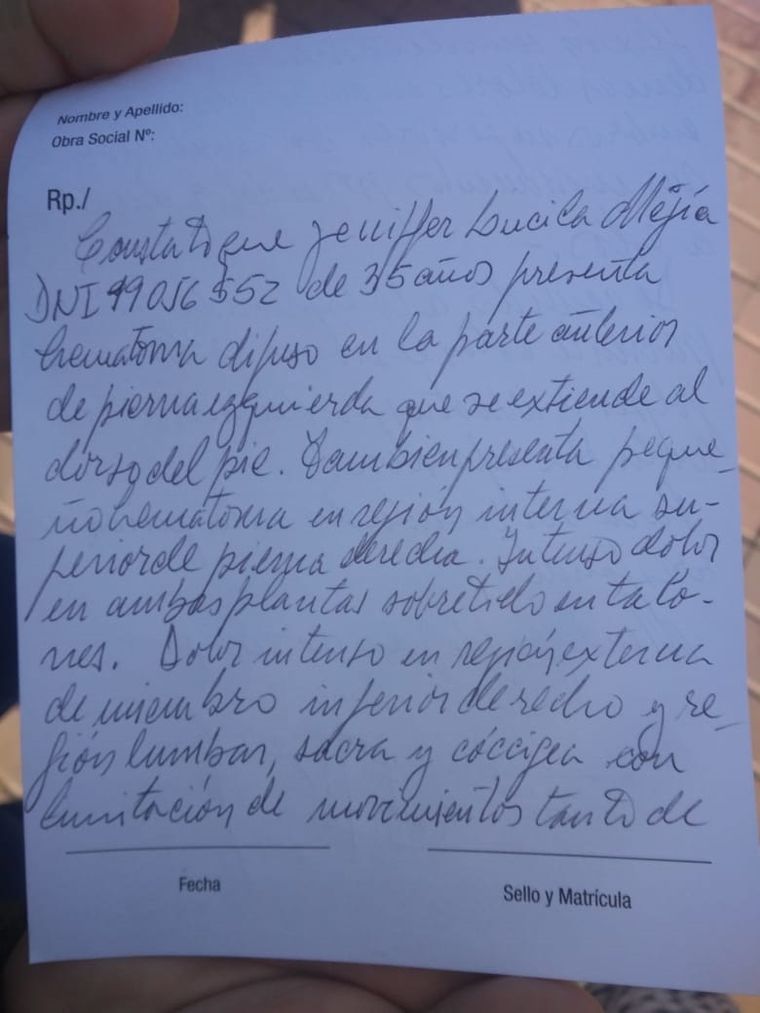 Nombre y Apellido:
Obra Social Nº:
Rp./
Constato que Jeniffer Lucila Mejía
DNI 99056552 de 35 años presenta
hematoma difuso en la parte anterior
de pierna izquierda que se extiende al
dorso del pie. Tambien presenta peque-
ño hematoma en región interna su-
perior de pierna derecha. Intenso dolor
en ambas plantas sobretodo en talo-
nes. Dolor intenso en región externa
de miembro inferior derecho y re-
gión lumbar, sacra y cóccigea con
limitación de movimientos tanto de
Fecha
Sello y Matrícula